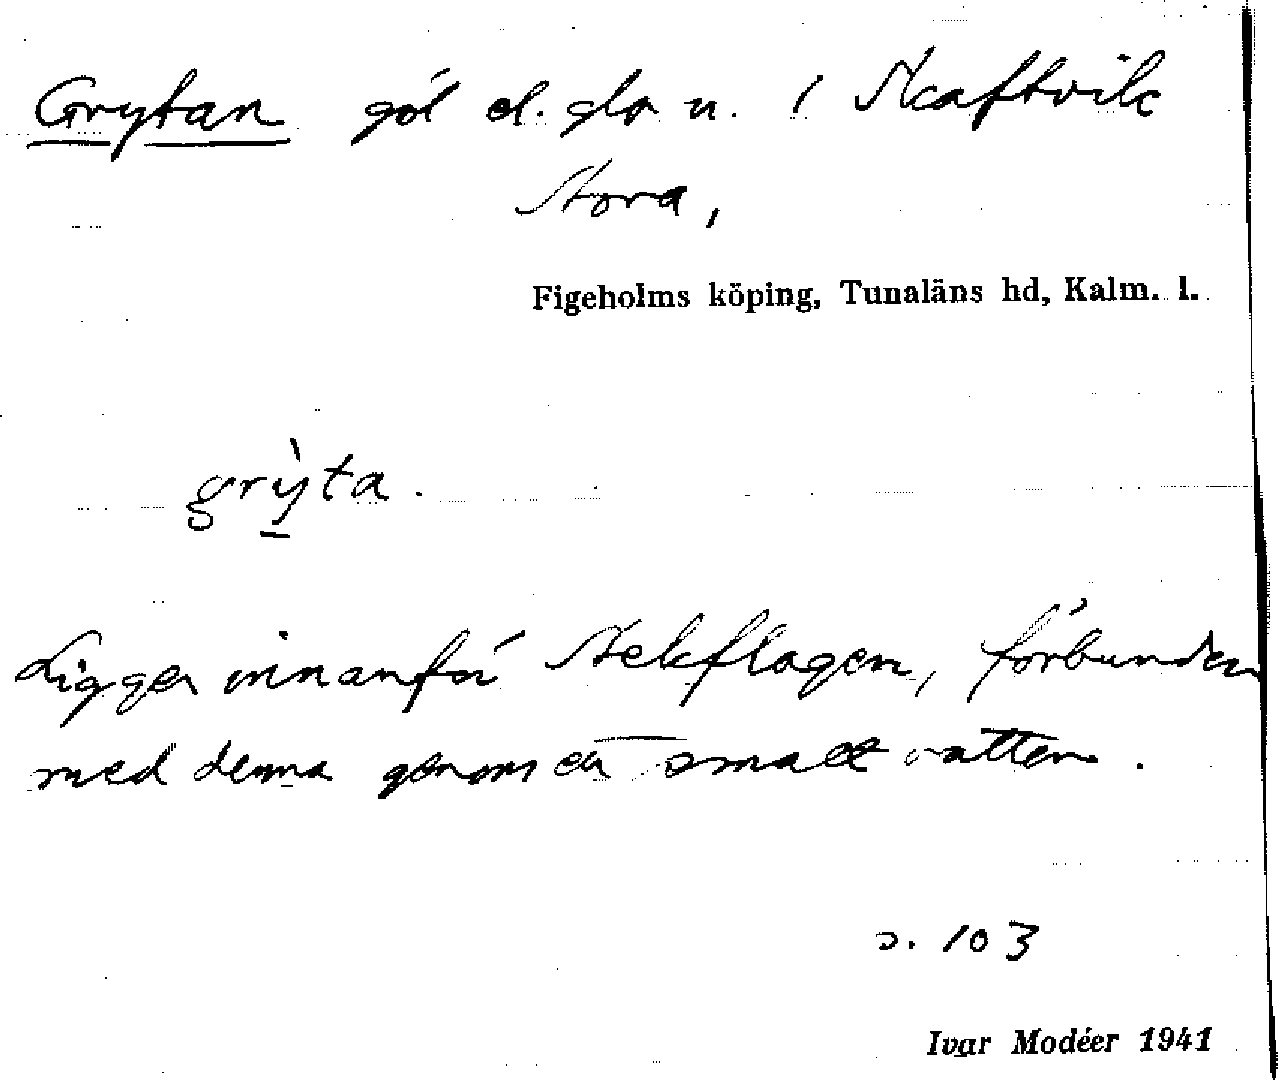 Grytan göl el. glo u. i Skaftvik
Stora,
Figeholms köping, Tunaläns hd, Kalm. l.
grỳta.
Ligger innanför Stekflagen, förbunden
med denna genom ett smalt vatten.
s. 103
Ivar Modéer 1941